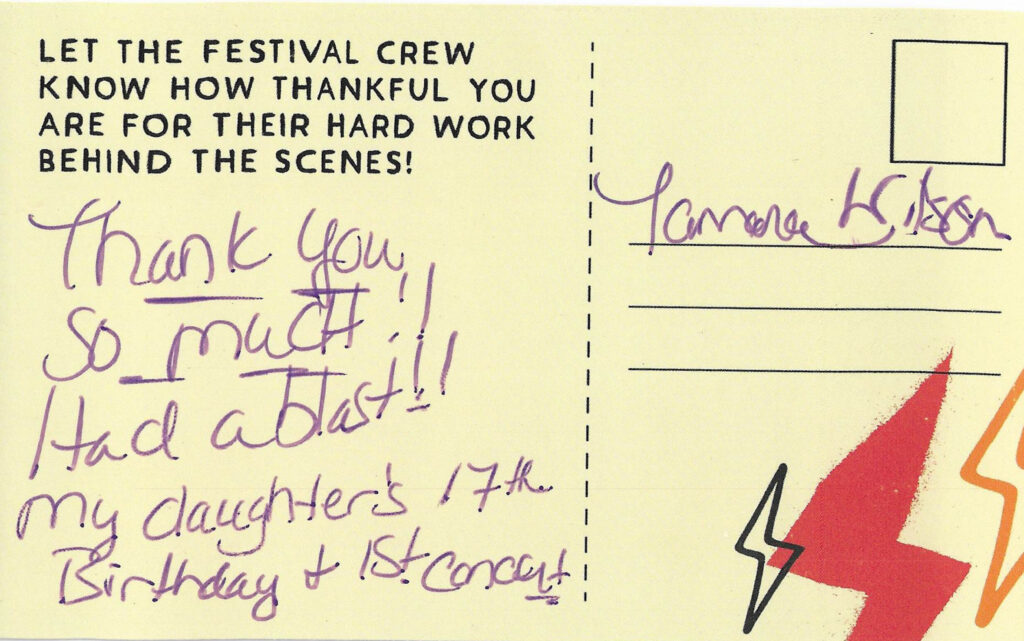 LET THE FESTIVAL CREW
KNOW HOW THANKFUL YOU
ARE FOR THEIR HARD WORK
BEHIND THE SCENES!
Thank you
so much!!
Had a blast!!!
My daughter's 17th
Birthday + 1st concert
Tamara Wilson